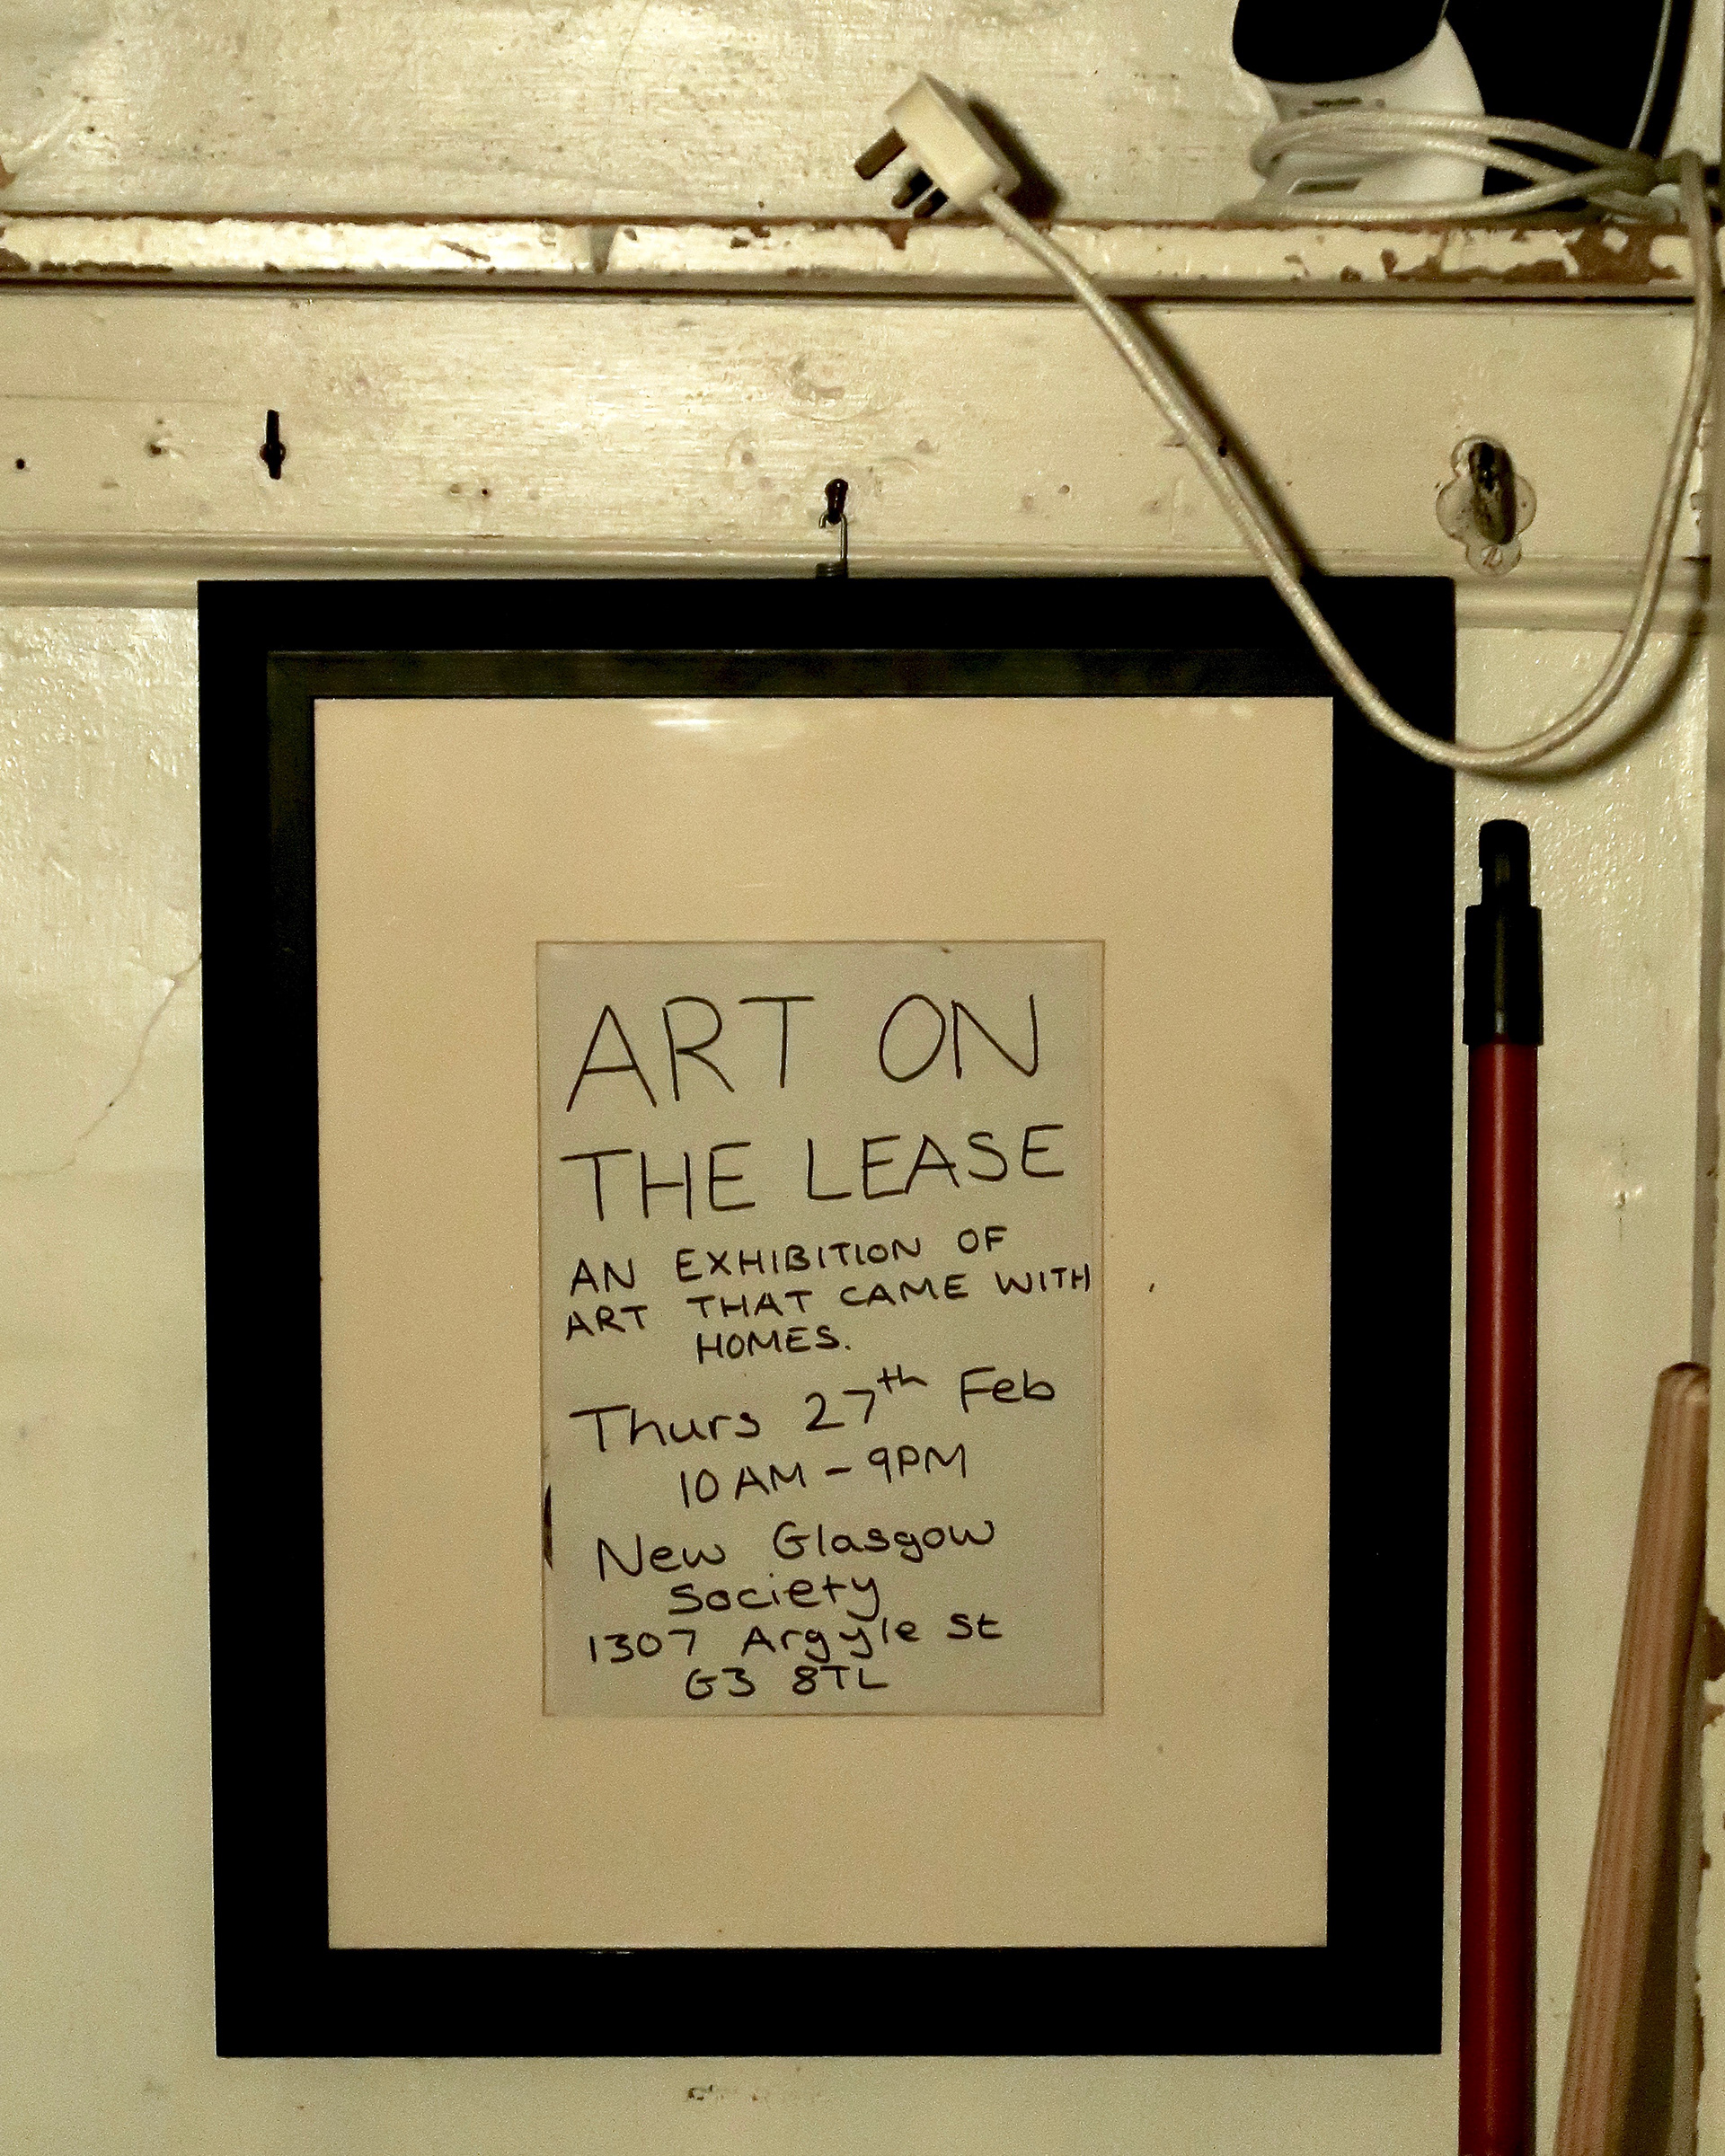 ART ON
THE LEASE
AN EXHIBITION OF
ART THAT CAME WITH
HOMES.
Thurs 27th Feb
10 AM - 9PM
New Glasgow
Society
1307 Argyle St
G3 8TL